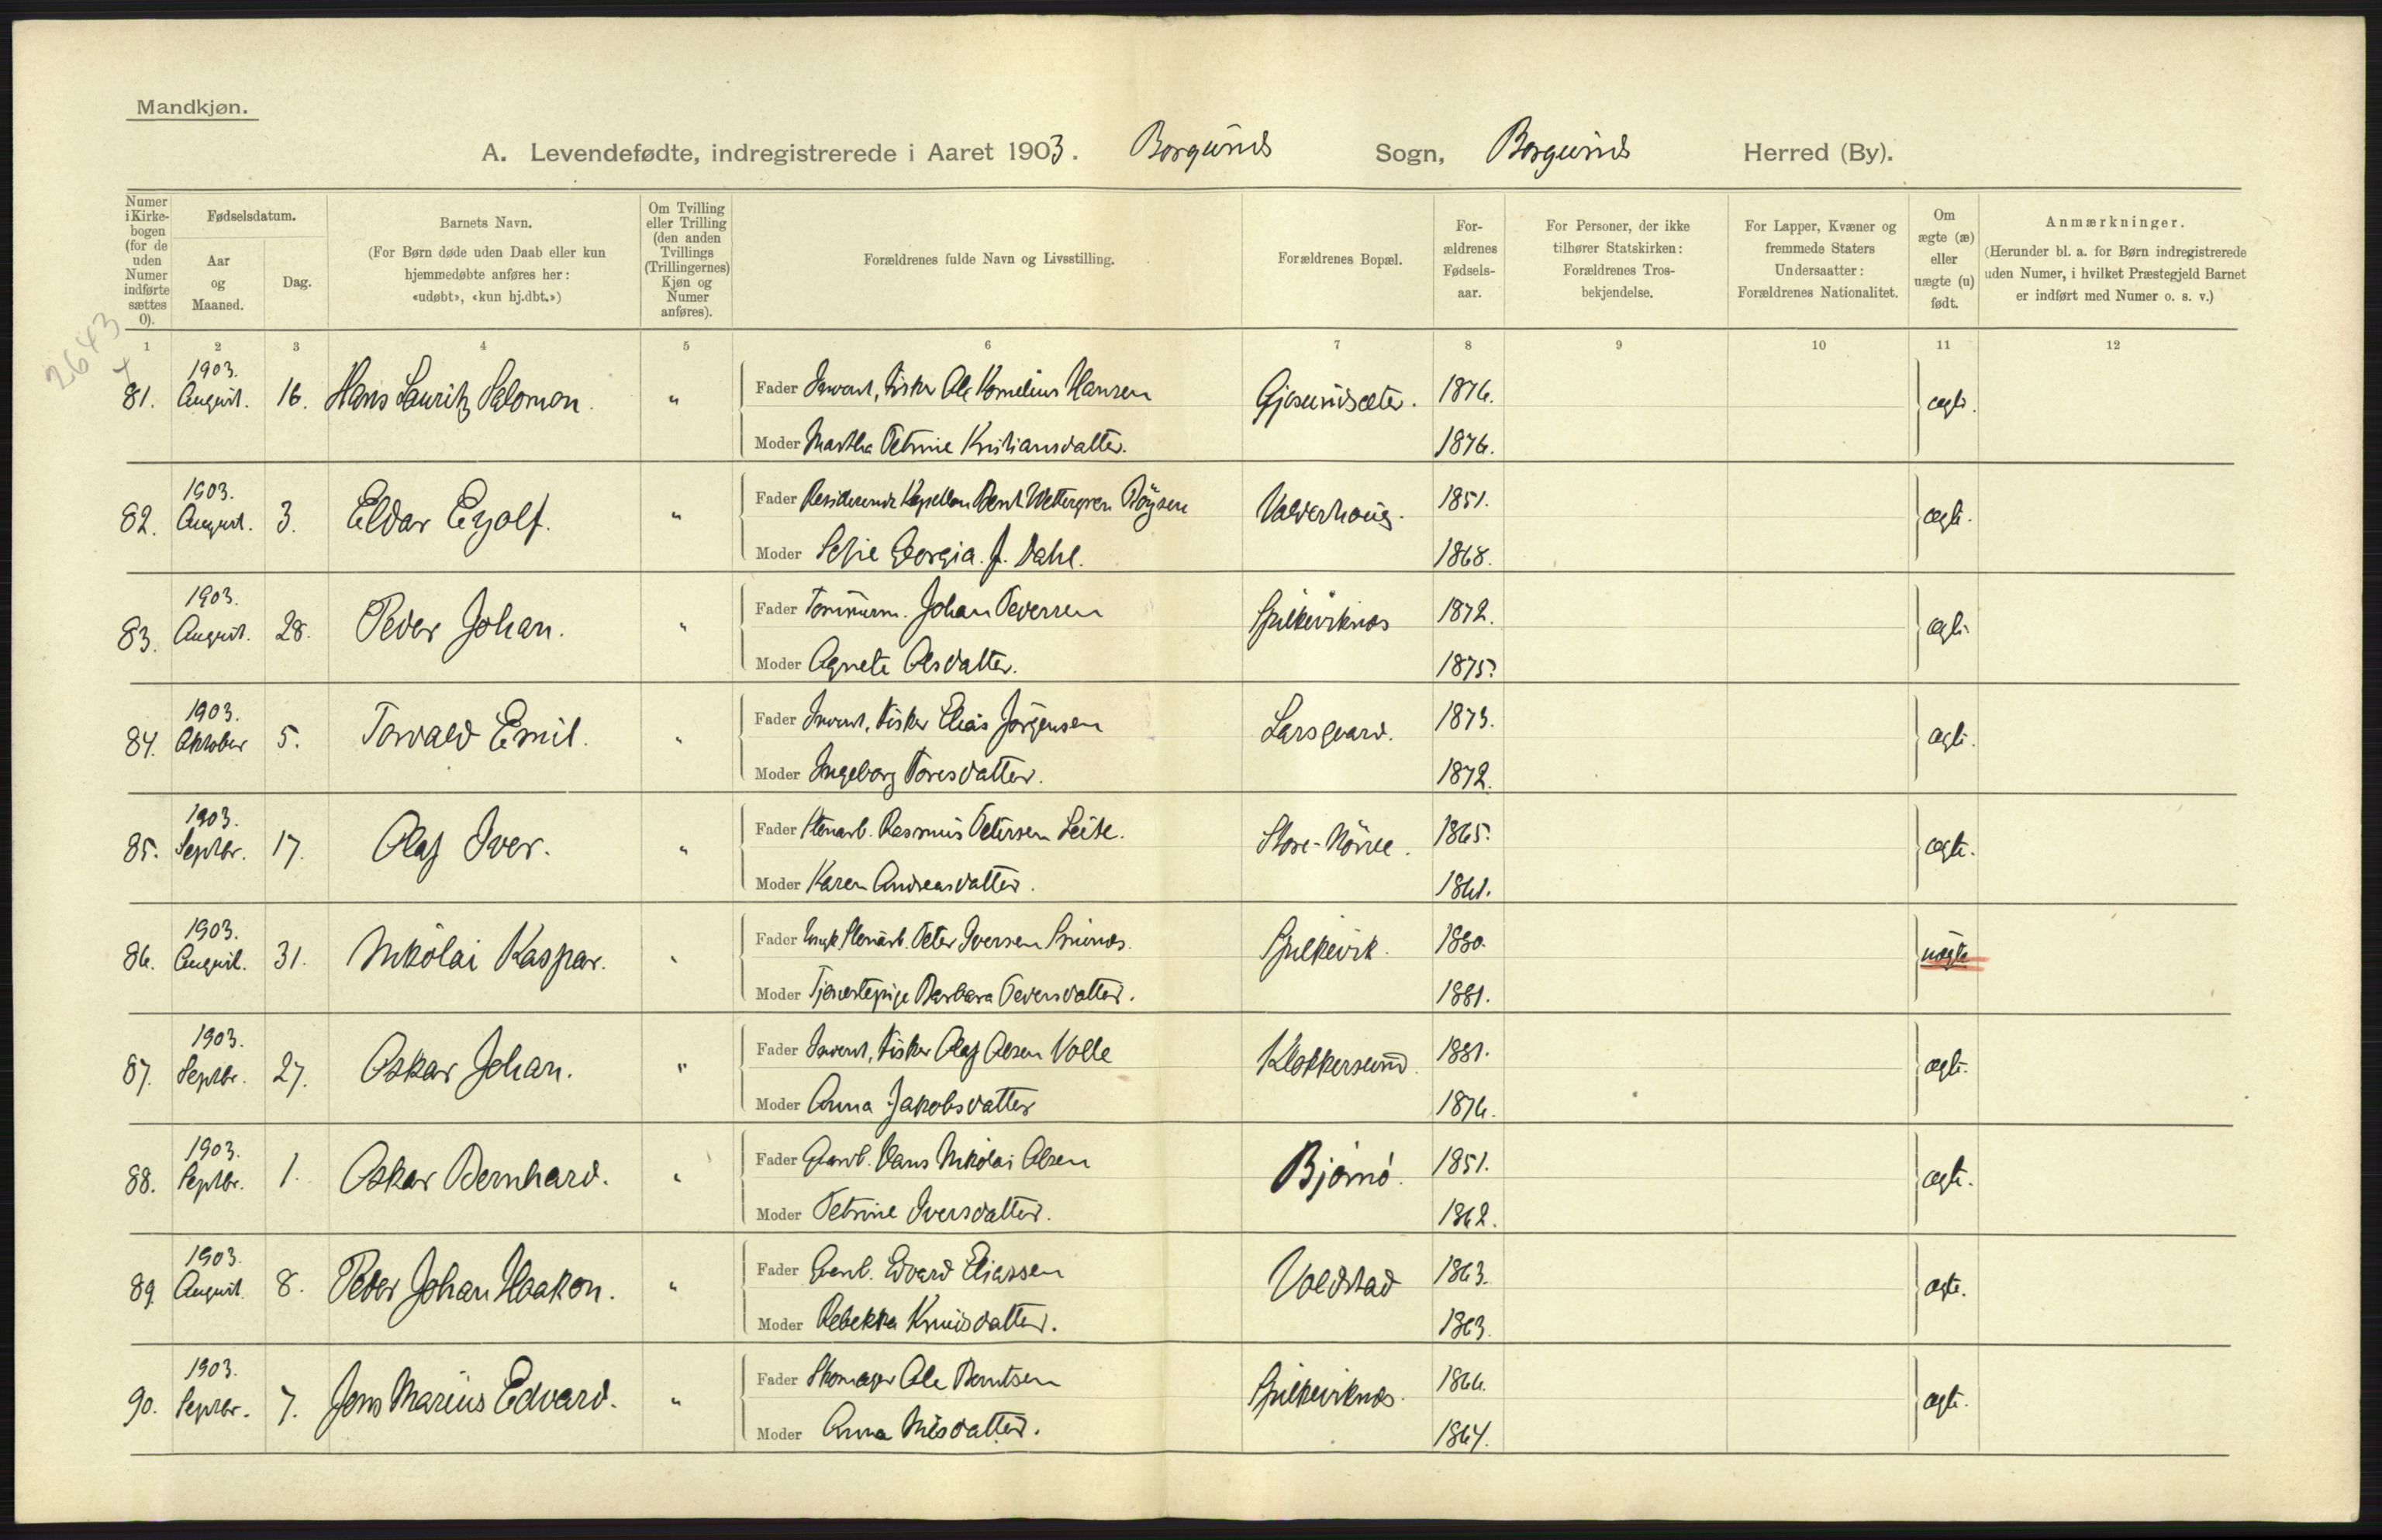 Mandkjøn.
A. Levendefødte, indregistrerede i Aaret 1903. Borgunds Sogn, Borgunds Herred (By).
Numer i Kirkebogen (for de uden Numer indførte sættes 0).
Fødselsdatum.
Aar og Maaned.
Dag.
Barnets Navn.
(For Børn døde uden Daab eller kun hjemmedøbte anføres her: «udøbt», «kun hj.dbt.»)
Om Tvilling eller Trilling (den anden Tvillings (Trillingernes) Kjøn og Numer anføres).
Forældrenes fulde Navn og Livsstilling.
Forældrenes Bopæl.
Forældrenes Fødselsaar.
For Personer, der ikke tilhører Statskirken: Forældrenes Trosbekjendelse.
For Lapper, Kvæner og fremmede Staters Undersaatter: Forældrenes Nationalitet.
Om ægte (æ) eller uægte (u) født.
Anmærkninger.
(Herunder bl. a. for Børn indregistrerede uden Numer, i hvilket Præstegjeld Barnet er indført med Numer o. s. v.)
2643
1 2 3 4 5 6 7 8 9 10 11 12
81. 1903. August. 16. Hans Lauritz Salomon. " Fader Fisker Ole Kornelius Hansen Gjosundsæter. 1876. ægte.
Moder Martha Petrine Kristiansdatter. 1876.
82. 1903. August. 3. Eldar Eyolf. " Fader Residerende Kapellan Bernt Wettergren Böysen Valderhoug. 1851. ægte.
Moder Sofie Georgia. J. Dahl. 1868.
83. 1903. August. 28. Peder Johan. " Fader Tömmerm. Johan Pedersen Spilkeviknes 1872. ægte
Moder Agnete Olsdatter. 1875.
84. 1903. Oktober 5. Torvald Emil. " Fader Fisker Elias Jörgensen Larsgaard. 1873. ægte.
Moder Ingeborg Toresdatter. 1872.
85. 1903. Septbr. 17. Olaf Iver. " Fader Stenarb. Rasmus Petersen Leite. Store-Nörve. 1865. ægte.
Moder Karen Andreasdatter. 1861.
86. 1903. August. 31. Nikolai Kaspar. " Fader Ungk. Stenarb. Peter Iversen Spilkevik. 1880. uægte
Moder Tjenestepige Barbara Pedersdatter. 1881.
87. 1903. Septbr. 27. Oskar Johan. " Fader Fisker Olaf Olsen Volle Klokkersund. 1881. ægte.
Moder Anna Jakobsdatter 1876.
88. 1903. Septbr. 1. Oskar Bernhard. " Fader Hans Nikolai Olsen Björnö. 1851. ægte.
Moder Petrine Iversdatter. 1862.
89. 1903. August. 8. Peder Johan Haakon. " Fader Edvard Eliassen Voldstad 1863. ægte.
Moder Rebekka Knutsdatter. 1863.
90. 1903. Septbr. 7. Jens Marius Edvard. " Fader Skomager Ole Berntsen Spilkeviknes. 1866. ægte.
Moder Anna Nilsdatter. 1864.